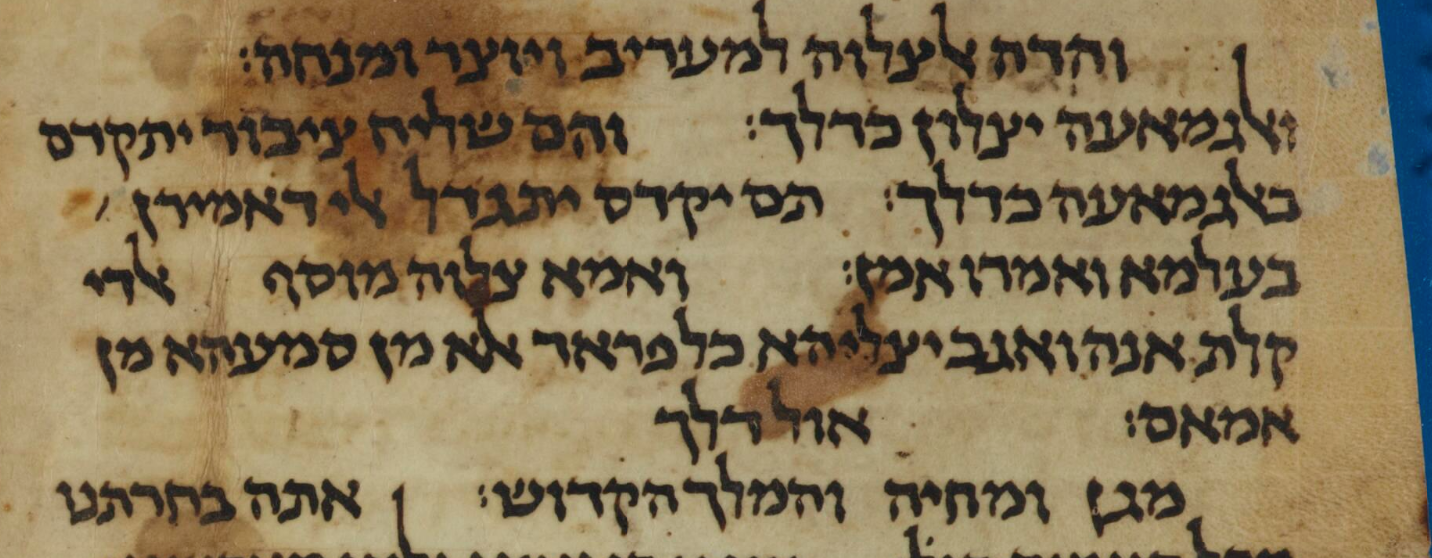 והדה אלצלוה למעריב ויוצר ומנחה:
ואלגמאעה יצלון כדלך: והם שליח ציבור יתקדם
באלגמאעה כדלך: תם יקדס יתגדל אלי דאמירן
בעלמא ואמרו אמן: ואמא צלוה מוסף אלדי
קלת אנהא ואגב יצליהא כל פראד אלא מן סמעהא מן
אמאם: אול דלך
מגן ומחיה והמלך הקדוש: אתה בחרתנו